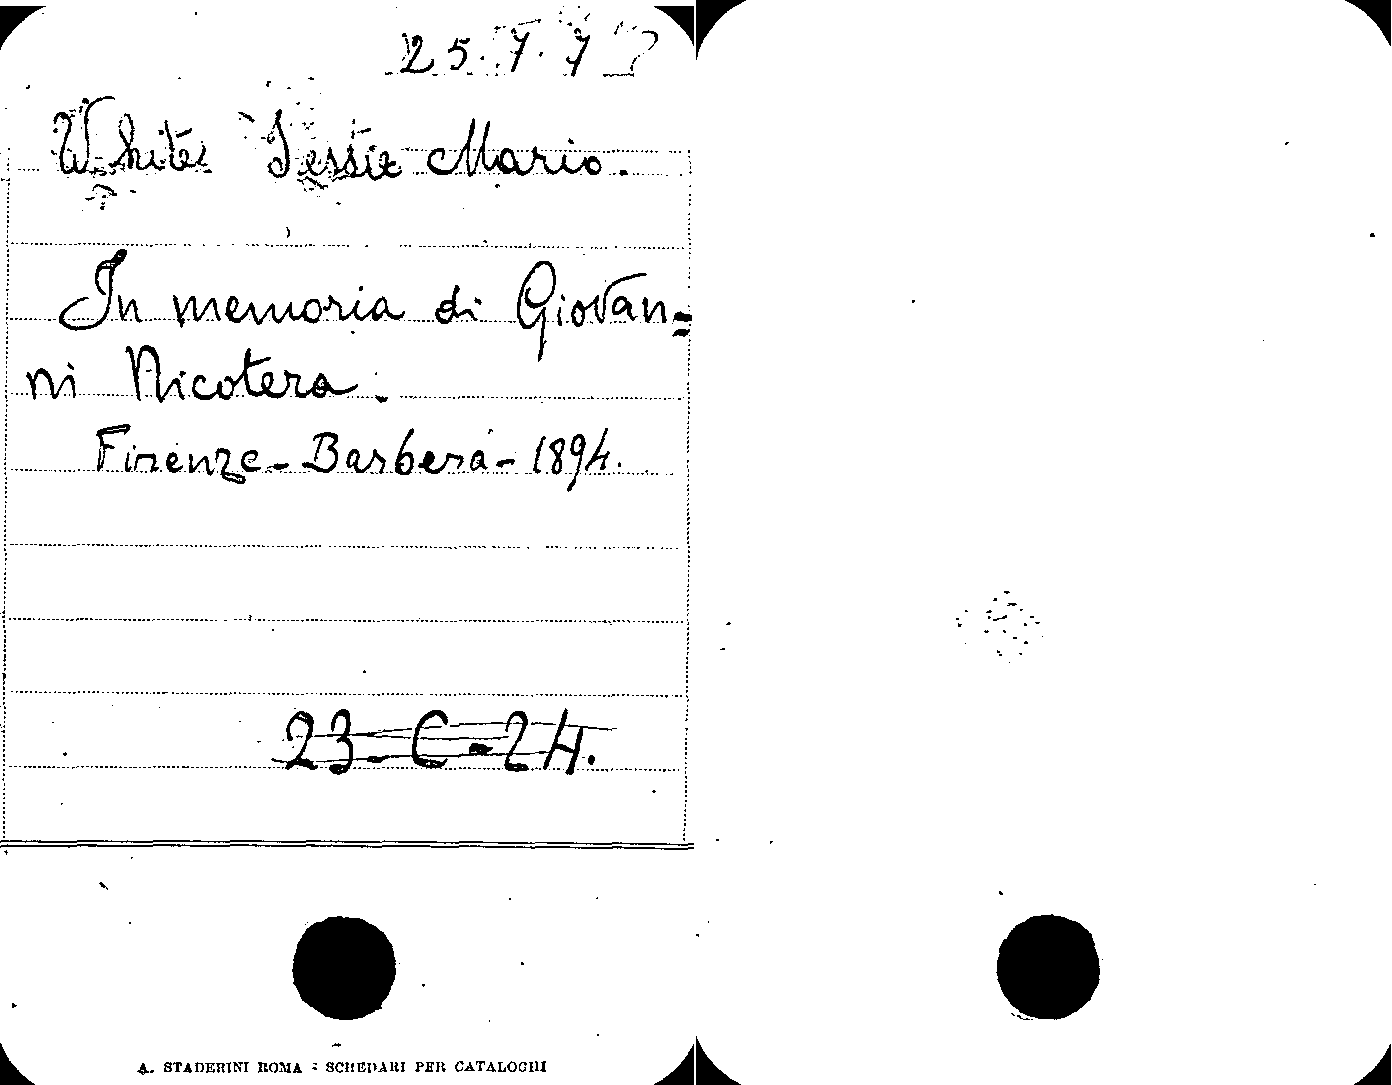 25.7.7
White Jessie Mario.
In memoria di Giovan=
ni Nicotera.
Firenze - Barbera - 1894.
23-C-24.
A. STADERINI ROMA : SCHEDARI PER CATALOGHI